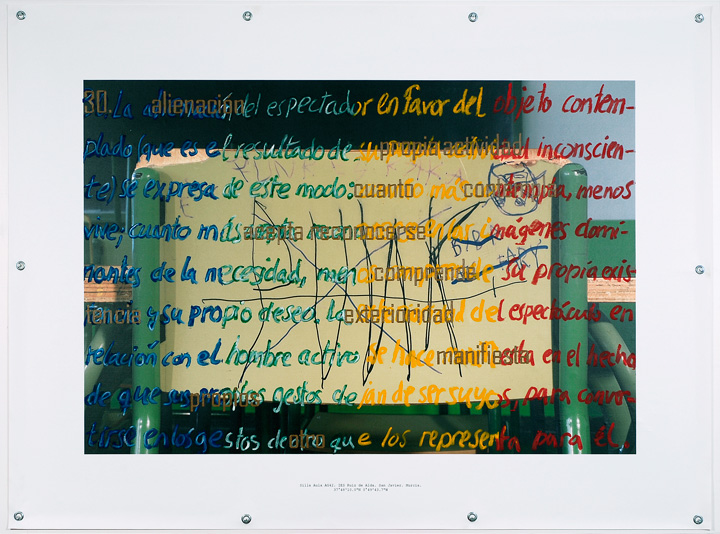 30. La alienación del espectador en favor del objeto contem-
plado (que es el resultado de su propia actividad inconscien-
te) se expresa de este modo: cuanto más contempla, menos
vive; cuanto más acepta reconocerse en las imágenes domi-
nantes de la necesidad, menos comprende su propia exis-
tencia y su propio deseo. La exterioridad del espectáculo en
relación con el hombre activo se hace manifiesta en el hecho
de que sus propios gestos dejan de ser suyos, para conver-
tirse en los gestos de otro que los representa para él.